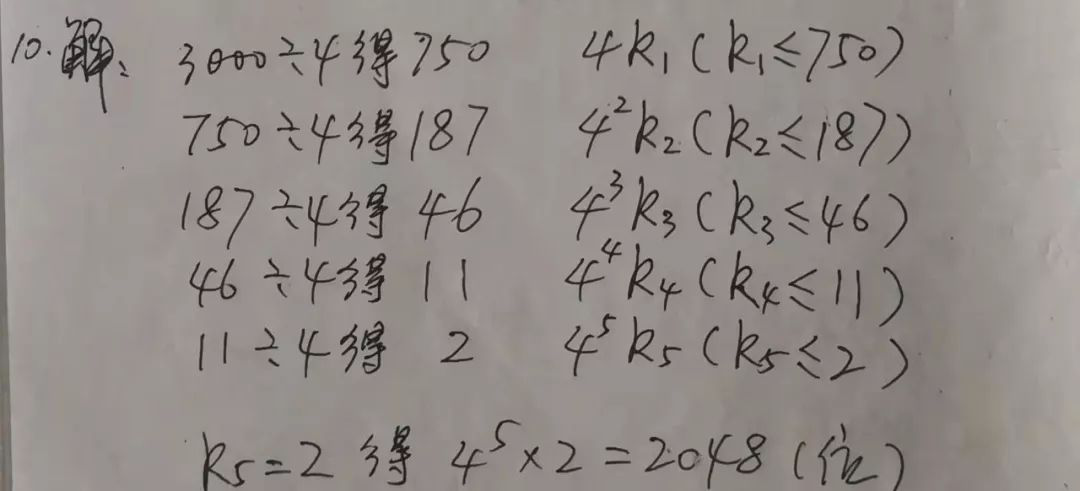 10.解、 3000÷4得750 4k₁(k₁≤750)
750÷4得187 4²k₂(k₂≤187)
187÷4得 46 4³k₃(k₃≤46)
46÷4得 11 4⁴k₄(k₄≤11)
11÷4得 2 4⁵k₅(k₅≤2)
k₅=2 得 4⁵×2=2048(位)